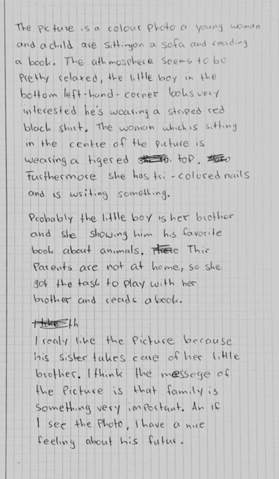 The picture is a colour photo a young woman
and a child are sitting on a sofa and reading
a book. The athmosphere seems to be
pretty relaxed, the little boy in the
bottom left-hand-corner looks very
interested he's wearing a striped red
black shirt. The woman which is sitting
in the centre of the picture is
wearing a tigered top.
Furthermore she has tri-colored nails
and is writing something.
Probably the little boy is her brother
and she showing him his favorite
book about animals. Thir
Parents are not at home, so she
got the task to play with her
brother and reads a book.
I realy like the Picture because
his sister takes care of her little
brother. I think the message of
the Picture is that family is
something very important. An if
I see the photo, I have a nice
feeling about his futur.